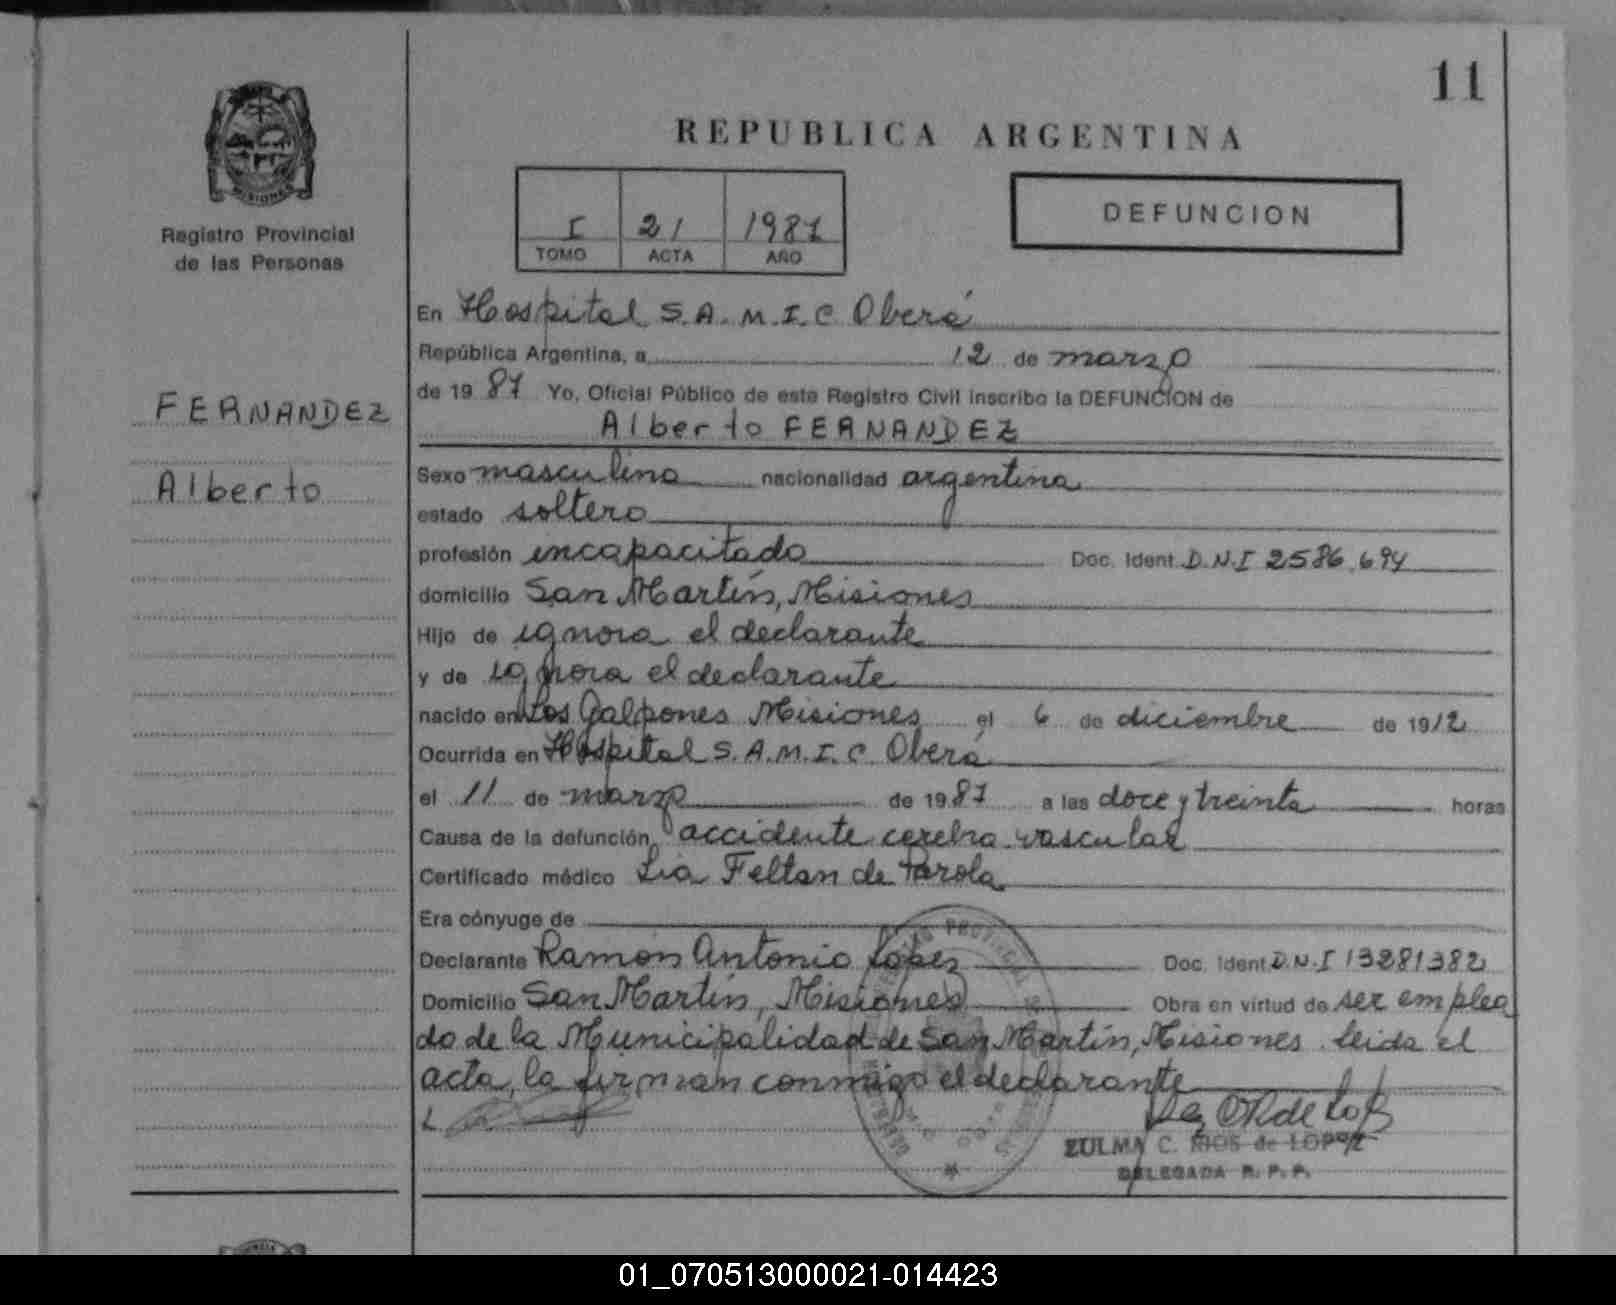 11
REPUBLICA ARGENTINA
MISIONES
Registro Provincial
de las Personas
I 21 1987
TOMO ACTA AÑO
DEFUNCION
FERNANDEZ
Alberto
En Hospital S.A.M.I.C. Oberá
República Argentina, a 12 de marzo
de 1987 Yo, Oficial Público de este Registro Civil inscribo la DEFUNCION de
Alberto FERNANDEZ
Sexo masculino nacionalidad argentina
estado soltero
profesión incapacitado Doc. Ident. D.N.I 2586.694
domicilio San Martín, Misiones
Hijo de ignora el declarante
y de ignora el declarante
nacido en Los Galpones Misiones el 6 de diciembre de 1912
Ocurrida en Hospital S.A.M.I.C. Oberá
el 11 de marzo de 1987 a las doce y treinta horas
Causa de la defunción accidente cerebro vascular
Certificado médico Lia Feltan de Parola
Era cónyuge de
Declarante Ramón Antonio López Doc. Ident. D.N.I 13281382
Domicilio San Martín, Misiones Obra en virtud de ser emplea
do de la Municipalidad de San Martín, Misiones leida el
acta, la firman conmigo el declarante
ZULMA C. RIOS de LOPEZ
DELEGADA R. P. P.
01_070513000021-014423